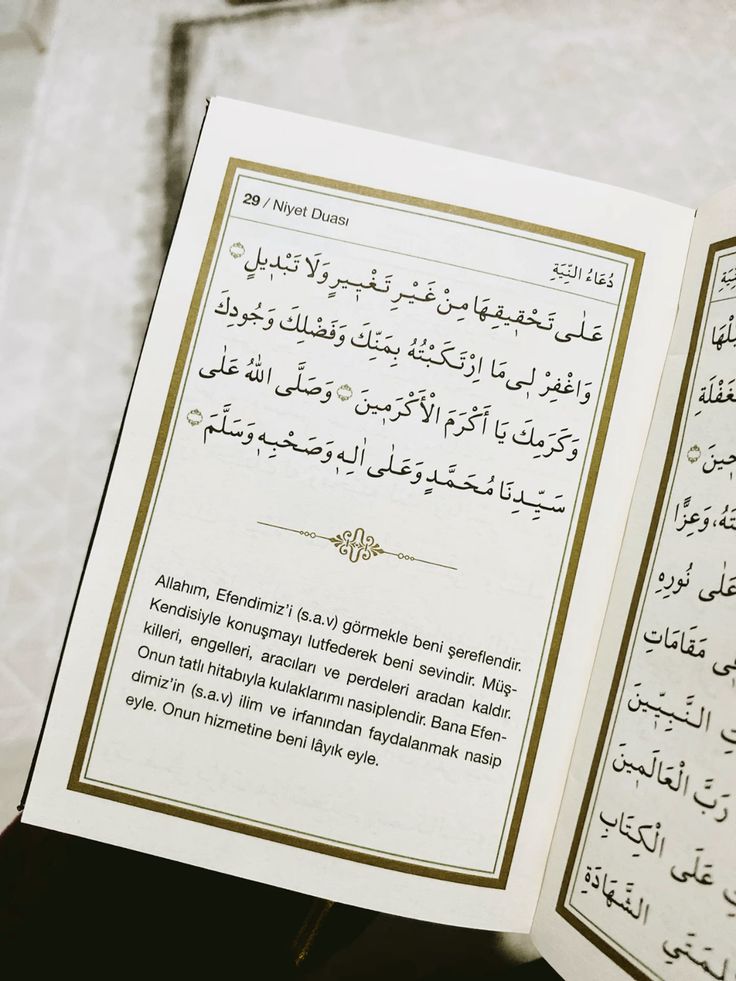 29 / Niyet Duası
دُعَاءُ النِّيَّةِ
عَلٰى تَحْقِيقِهَا مِنْ غَيْرِ تَغْيِيرٍ وَلَا تَبْدِيلٍ
وَاغْفِرْ لِي مَا اِرْتَكَبْتُهُ بِمَنِّكَ وَفَضْلِكَ وَجُودِكَ
وَكَرَمِكَ يَا أَكْرَمَ الْأَكْرَمِينَ وَصَلَّى اللهُ عَلٰى
سَيِّدِنَا مُحَمَّدٍ وَعَلٰى اٰلِهِ وَصَحْبِهِ وَسَلَّمَ
Allahım, Efendimiz’i (s.a.v) görmekle beni şereflendir.
Kendisiyle konuşmayı lutfederek beni sevindir. Müş-
killeri, engelleri, aracıları ve perdeleri aradan kaldır.
Onun tatlı hitabıyla kulaklarımı nasiplendir. Bana Efen-
dimiz’in (s.a.v) ilim ve irfanından faydalanmak nasip
eyle. Onun hizmetine beni lâyık eyle.
وَعِزًّا
عَلٰى نُورِهِ
مَقَامَاتِ
النَّبِيِّينَ
رَبَّ الْعَالَمِينَ
عَلَى الْكِتَابِ
الشَّهَادَةِ